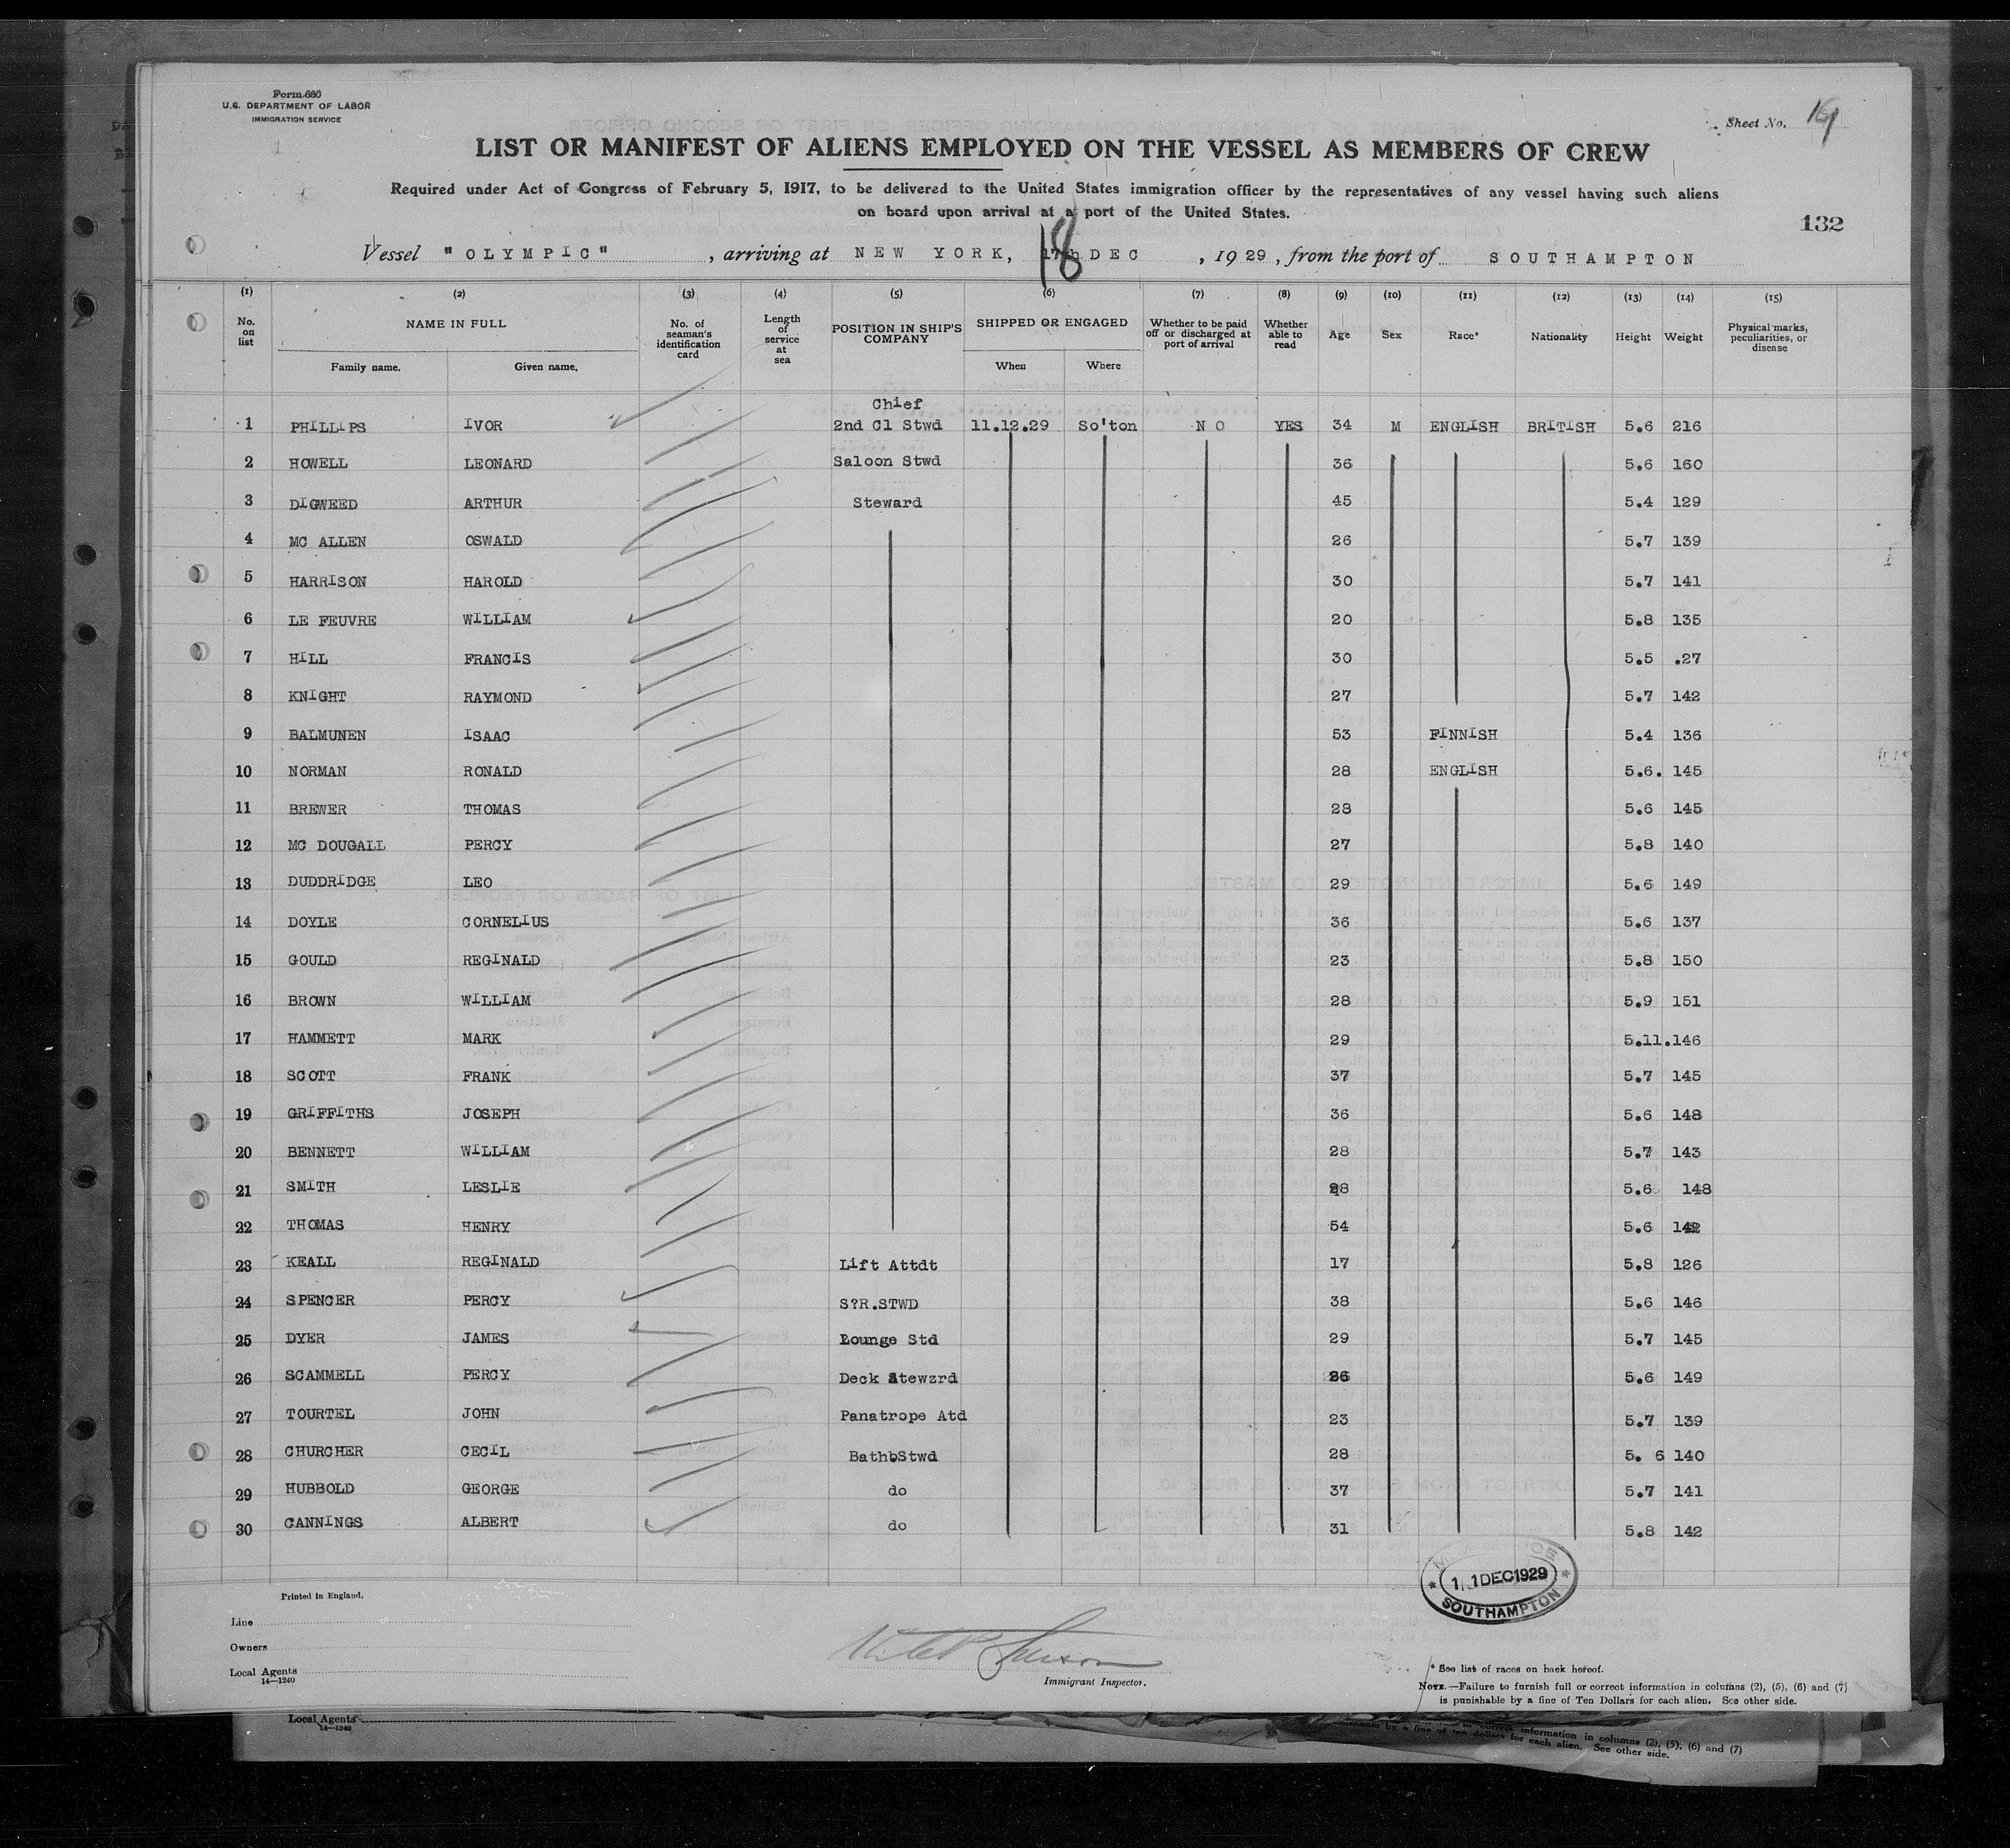 Form 680
U.S. DEPARTMENT OF LABOR
IMMIGRATION SERVICE
Sheet No. 169
LIST OR MANIFEST OF ALIENS EMPLOYED ON THE VESSEL AS MEMBERS OF CREW
Required under Act of Congress of February 5, 1917, to be delivered to the United States immigration officer by the representatives of any vessel having such aliens
on board upon arrival at a port of the United States.
132
Vessel "OLYMPIC", arriving at NEW YORK, 18 DEC, 1929, from the port of SOUTHAMPTON
(1) (2) (3) (4) (5) (6) (7) (8) (9) (10) (11) (12) (13) (14) (15)
No. on list NAME IN FULL Family name. Given name. No. of seaman's identification card Length of service at sea POSITION IN SHIP'S COMPANY SHIPPED OR ENGAGED When Where Whether to be paid off or discharged at port of arrival Whether able to read Age Sex Race* Nationality Height Weight Physical marks, peculiarities, or disease
Chief
1 PHILLIPS IVOR 2nd Cl Stwd 11.12.29 So'ton NO YES 34 M ENGLISH BRITISH 5.6 216
2 HOWELL LEONARD Saloon Stwd 36 5.6 160
3 DIGWEED ARTHUR Steward 45 5.4 129
4 MC ALLEN OSWALD 26 5.7 139
5 HARRISON HAROLD 30 5.7 141
6 LE FEUVRE WILLIAM 20 5.8 135
7 HILL FRANCIS 30 5.5 .27
8 KNIGHT RAYMOND 27 5.7 142
9 BALMUNEN ISAAC 53 FINNISH 5.4 136
10 NORMAN RONALD 28 ENGLISH 5.6. 145
11 BREWER THOMAS 28 5.6 145
12 MC DOUGALL PERCY 27 5.8 140
13 DUDDRIDGE LEO 29 5.6 149
14 DOYLE CORNELIUS 36 5.6 137
15 GOULD REGINALD 23 5.8 150
16 BROWN WILLIAM 28 5.9 151
17 HAMMETT MARK 29 5.11.146
18 SCOTT FRANK 37 5.7 145
19 GRIFFITHS JOSEPH 36 5.6 148
20 BENNETT WILLIAM 28 5.7 143
21 SMITH LESLIE 5.6 148
22 THOMAS HENRY 54 5.6 142
23 KEALL REGINALD Lift Attdt 17 5.8 126
24 SPENCER PERCY S?R.STWD 38 5.6 146
25 DYER JAMES Lounge Std 29 5.7 145
26 SCAMMELL PERCY Deck Stewzrd 5.6 149
27 TOURTEL JOHN Panatrope Atd 23 5.7 139
28 CHURCHER CECIL BathbStwd 28 5. 6 140
29 HUBBOLD GEORGE do 37 5.7 141
30 CANNINGS ALBERT do 31 5.8 142
11 DEC 1929
SOUTHAMPTON
Printed in England.
Line
Owners
Local Agents
14—1240
Immigrant Inspector.
* See list of races on back hereof.
NOTE.—Failure to furnish full or correct information in columns (2), (5), (6) and (7)
is punishable by a fine of Ten Dollars for each alien. See other side.
Local Agents
14—1240
information in columns (2), (5), (6) and (7)
by a fine of ten dollars for each alien. See other side.